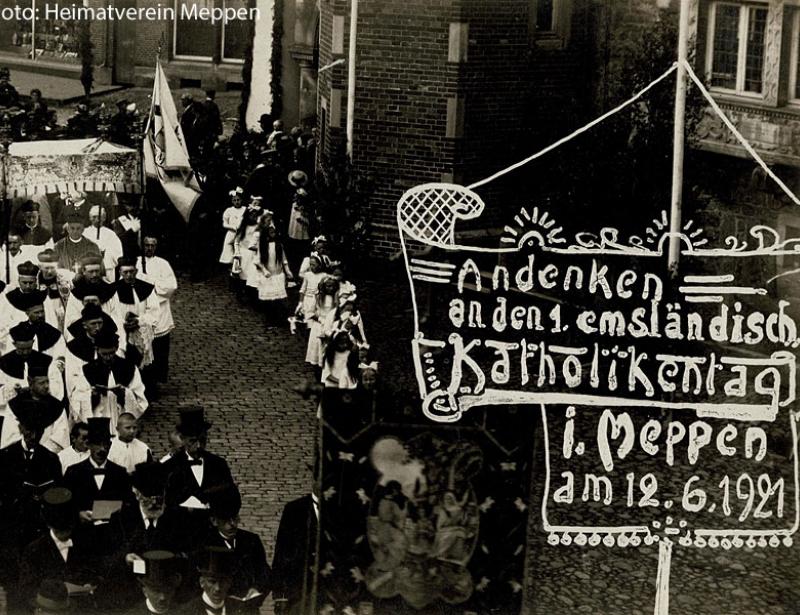 oto: Heimatverein Meppen
Andenken
an den 1. emsländisch.
Katholikentag
i. Meppen
am 12. 6. 1921